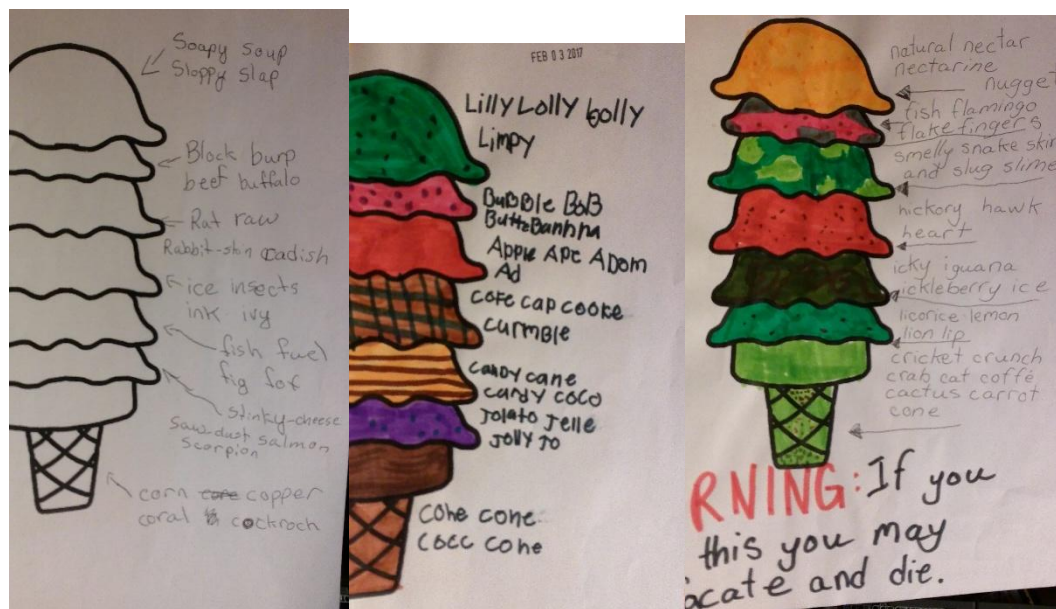 Soapy soup
Sloppy slap
Block burp
beef buffalo
Rat raw
Rabbit-skin radish
ice insects
ink ivy
fish fuel
fig fox
Stinky-cheese
Saw-dust salmon
Scorpion
corn copper
coral cockroch
FEB 03 2017
Lilly Lolly bolly
Limpy
BuBBle BoB
Apple Ape ADom
AD
cofe cap cooke
curmBle
candy cane
candy coco
Jolato Jelle
Jolly Jo
cone cone
cocc cone
natural nectar
nectarine
nugget
fish flamingo
flake fingers
smelly snake skin
and slug slime
hickory hawk
heart
icky iguana
ickleberry ice
licorice lemon
lion lip
cricket crunch
crab cat coffé
cactus carrot
cone
RNING: If you
this you may
ocate and die.